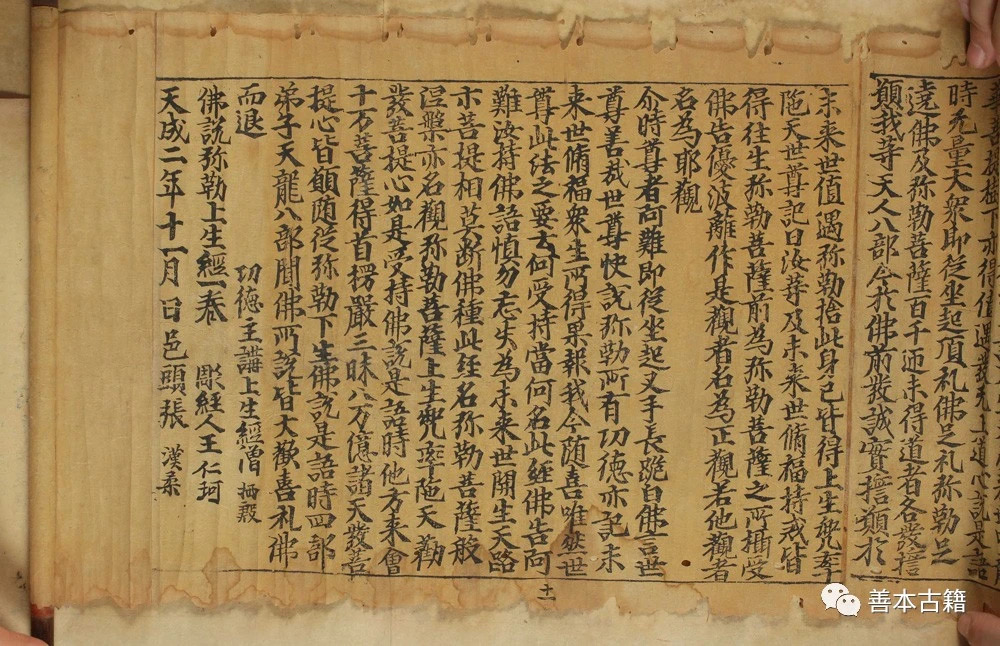 時无量大衆即從坐起頂礼佛足礼弥勒足
遶佛及弥勒菩薩百千迊未得道者各發擔
願我等天人八部今於佛前發誠實擔願於
未来世值遇弥勒捨此身已皆得上生兜率
陁天世尊記曰汝等及未来世脩福持戒皆
得往生弥勒菩薩前為弥勒菩薩之所攝受
佛告優波離作是觀者名為正觀若他觀者
名為耶觀
尒時尊者阿難即從坐起叉手長跪白佛言世
尊善哉世尊快說弥勒所有功德亦記未
来世脩福衆生所得果報我今随喜唯然世
尊此法之要云何受持當何名此經佛告阿
難汝持佛語慎勿忘失為未来世開生天路
示菩提相莫断佛種此經名弥勒菩薩般
涅槃亦名觀弥勒菩薩上生兜率陁天勸
發菩提心如是受持佛說是語時他方来會
十万菩薩得首楞嚴三昧八万億諸天發菩
提心皆願随從弥勒下生佛說是語時四部
弟子天龍八部聞佛所說皆大歡喜礼佛
而退
功德主講上生經僧 栖殷
佛說弥勒上生經一卷 彫經人王仁珂
天成二年十一月日邑頭張 漢柔
十一
善本古籍